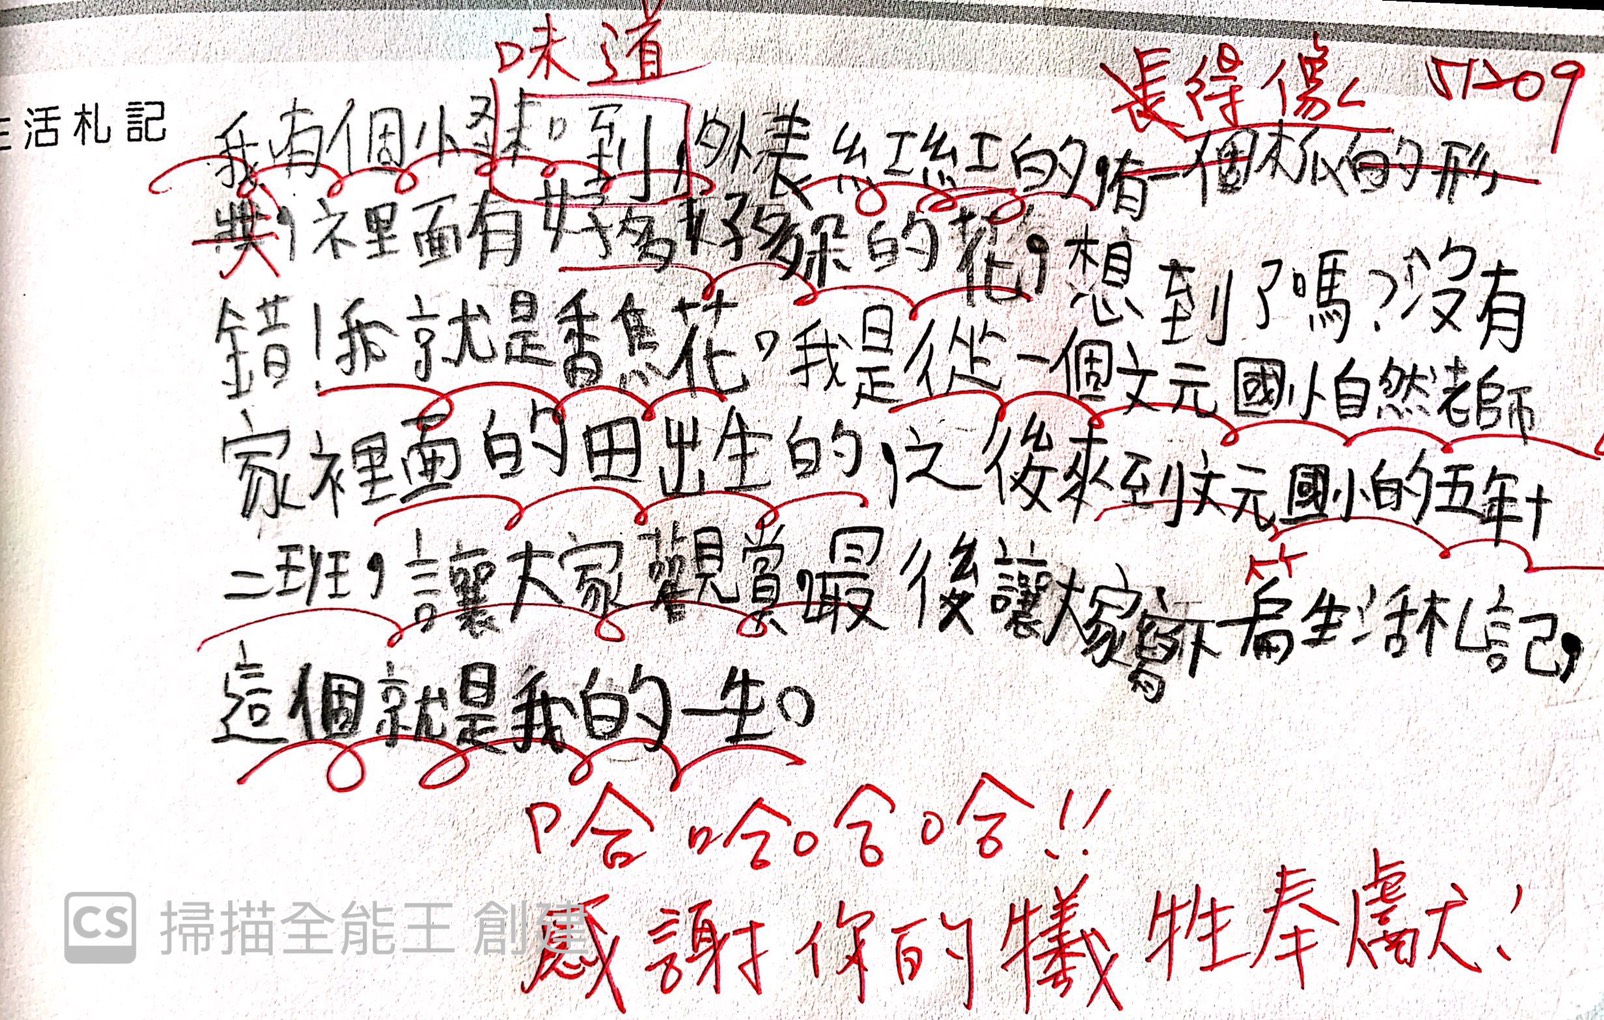 味道
長得像 51209
生活札記
我有個小 味到,外表紅紅的,有一個木瓜的形
狀,裡面有好多好多朵的花,想到了嗎?沒有
錯!我就是香蕉花。我是從一個文元國小自然老師
家裡面的田出生的,之後來到文元國小的五年十
二班,讓大家觀賞,最後讓大家寫下一篇生活札記,
這個就是我的一生。
哈哈哈哈!!
感謝你的犧牲奉獻!
CS 掃描全能王 創建